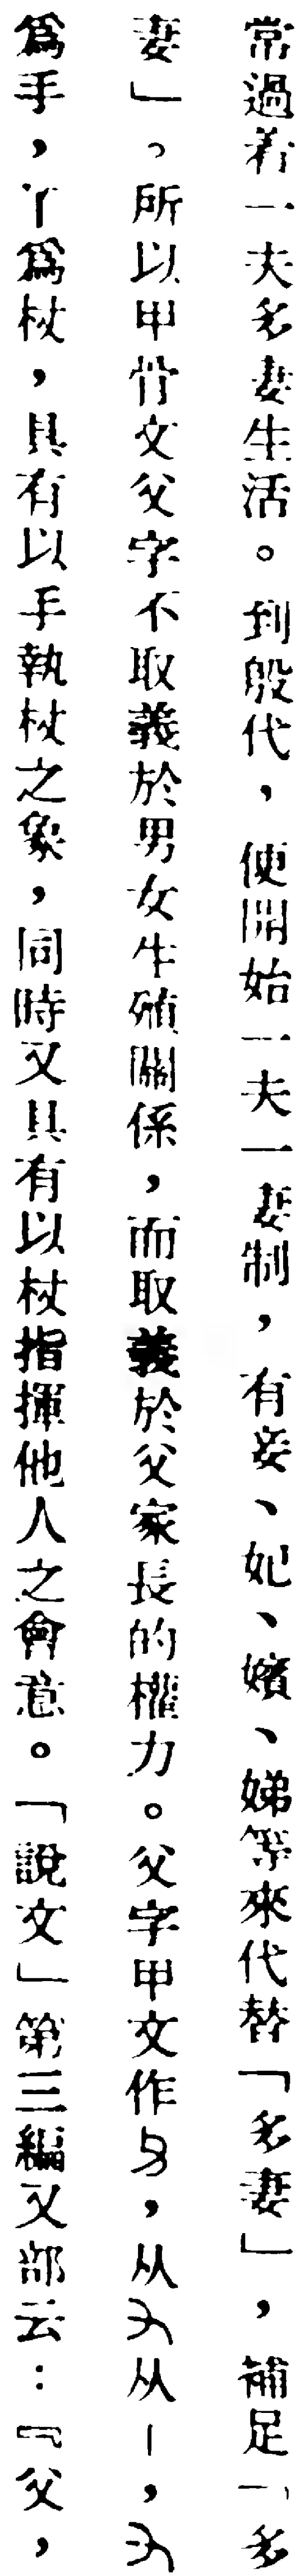 常過着一夫多妻生活。到殷代，便開始一夫一妻制，有妾、妃、嬪、娣等來代替「多妻」，補足「多
妻」。所以甲骨文父字不取義於男女生殖關係，而取義於父家長的權力。父字甲文作，从又从丨，又
爲手，丫爲杖，具有以手執杖之象，同時又具有以杖指揮他人之會意。「說文」第三編又部云：『父，